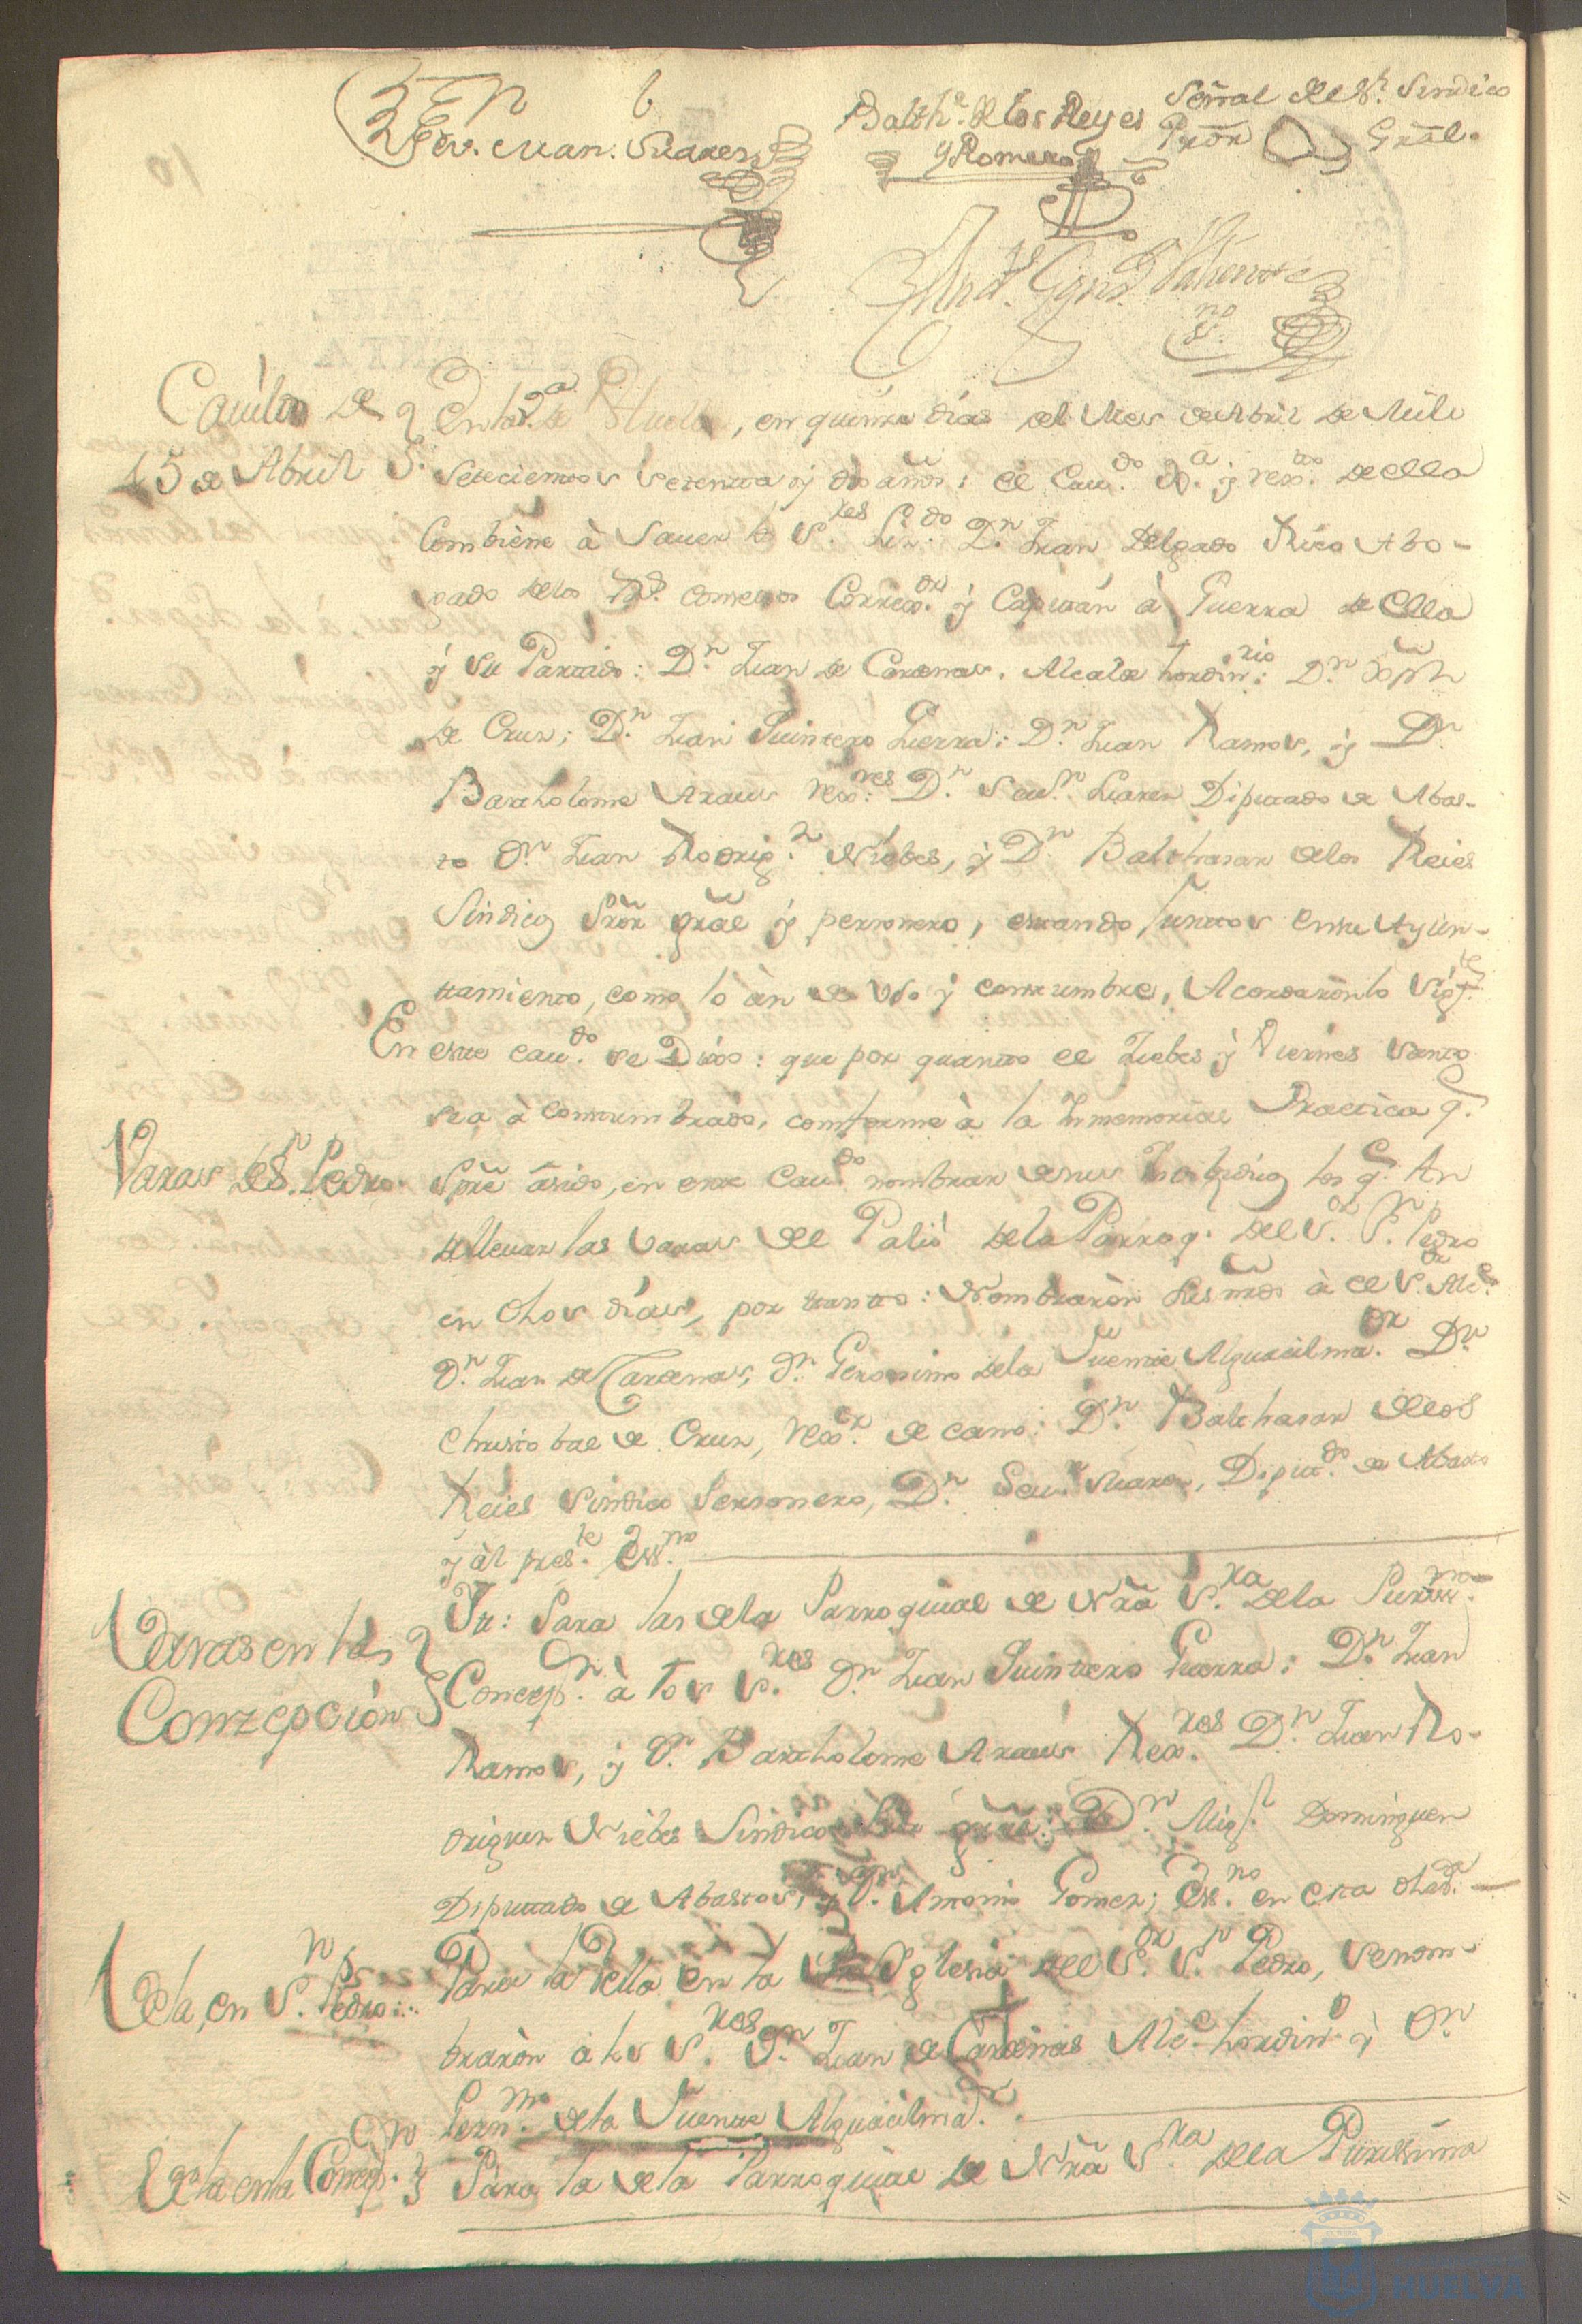 Sev. Man. Suarez
Balth.r de los Reyes
y Romero
Señal del Sr. Sindico
Pror Gral.
Cauildo de
15 de Abril
En la Va. de Huelua, en quinze dias del Mes de Abril de Mile
setecientos setenta y dos años: el Cau.do Ja. y rex.to de ella
Combiène à Sauer los S.res Liz.do D.n Juan Delgado Rico Abo-
gado de los Rs. Consejos Correx.or y Capitán à Guerra de ella
y su Partido: D.n Juan de Cardenas, Alcalde hordin.rio: D.n Joph
de Cruz; D.n Juan Quintero Guerra: D.n Juan Ramos, y D.n
Bartholome Araus Rex.res: D.n Seu.n Suarez Diputado de Abas-
to D.n Juan Rodrig.z Niebes, y D.n Balthasar de los Reies
Sindico Pror gral y personero, estando juntos en su Ayun-
tamiento, como lo àn de Vso y costumbre, Acordaròn lo Sig.te
En este cau.do se Dixo: que por quanto el Juebes y Viernes Santo
se a à costumbrado, conforme à la Inmemorial Practica q.e
Varas de S.n Pedro.
Spre àsido, en este Cau.do nombrar los q.e An
de lleuar las varas del Palio de la Parroq.l del S.or S.n Pedro
en dhos dias, por tanto: Nombraròn sus mds à el S.or Alc.e
D.n Juan de Cardenas, D.n Geronimo de la Fuente Alguacil ma.or D.n
Christobal de Cruz, Rex.or de cano: D.n Balthasar de los
Reies Sindico Personero, D.n Seu.n Suarez, Diput.do de Abasto
y àl pres.te Ess.no
Varas en la
Conzepción
Yt: Para las de la Parroquial de Nra S.ra de la Puriss.ma
Concep.on à los S.res D.n Juan Quintero Guerra: D.n Juan
Ramos, y D.n Bartholome Araus Rex.res D.n Juan Ro-
driguez Niebes Sindico Pror gral: D.n Mig.l Dominguez
Diputado de Abastos, y D.n Antonio Gomez; Ess.no en esta dha V.a
Vela, en S.n Pedro:
Para la Vela en la Iglesia del S.or S.n Pedro, se nom-
braròn à los S.res D.n Juan de Cardenas Alc.e hordin.o y D.n
Gern.mo de la Fuente Alguacil ma.or
Vela en la Concep.on
Para la de la Parroquial de Nra S.ra de la Purissima
HUELVA